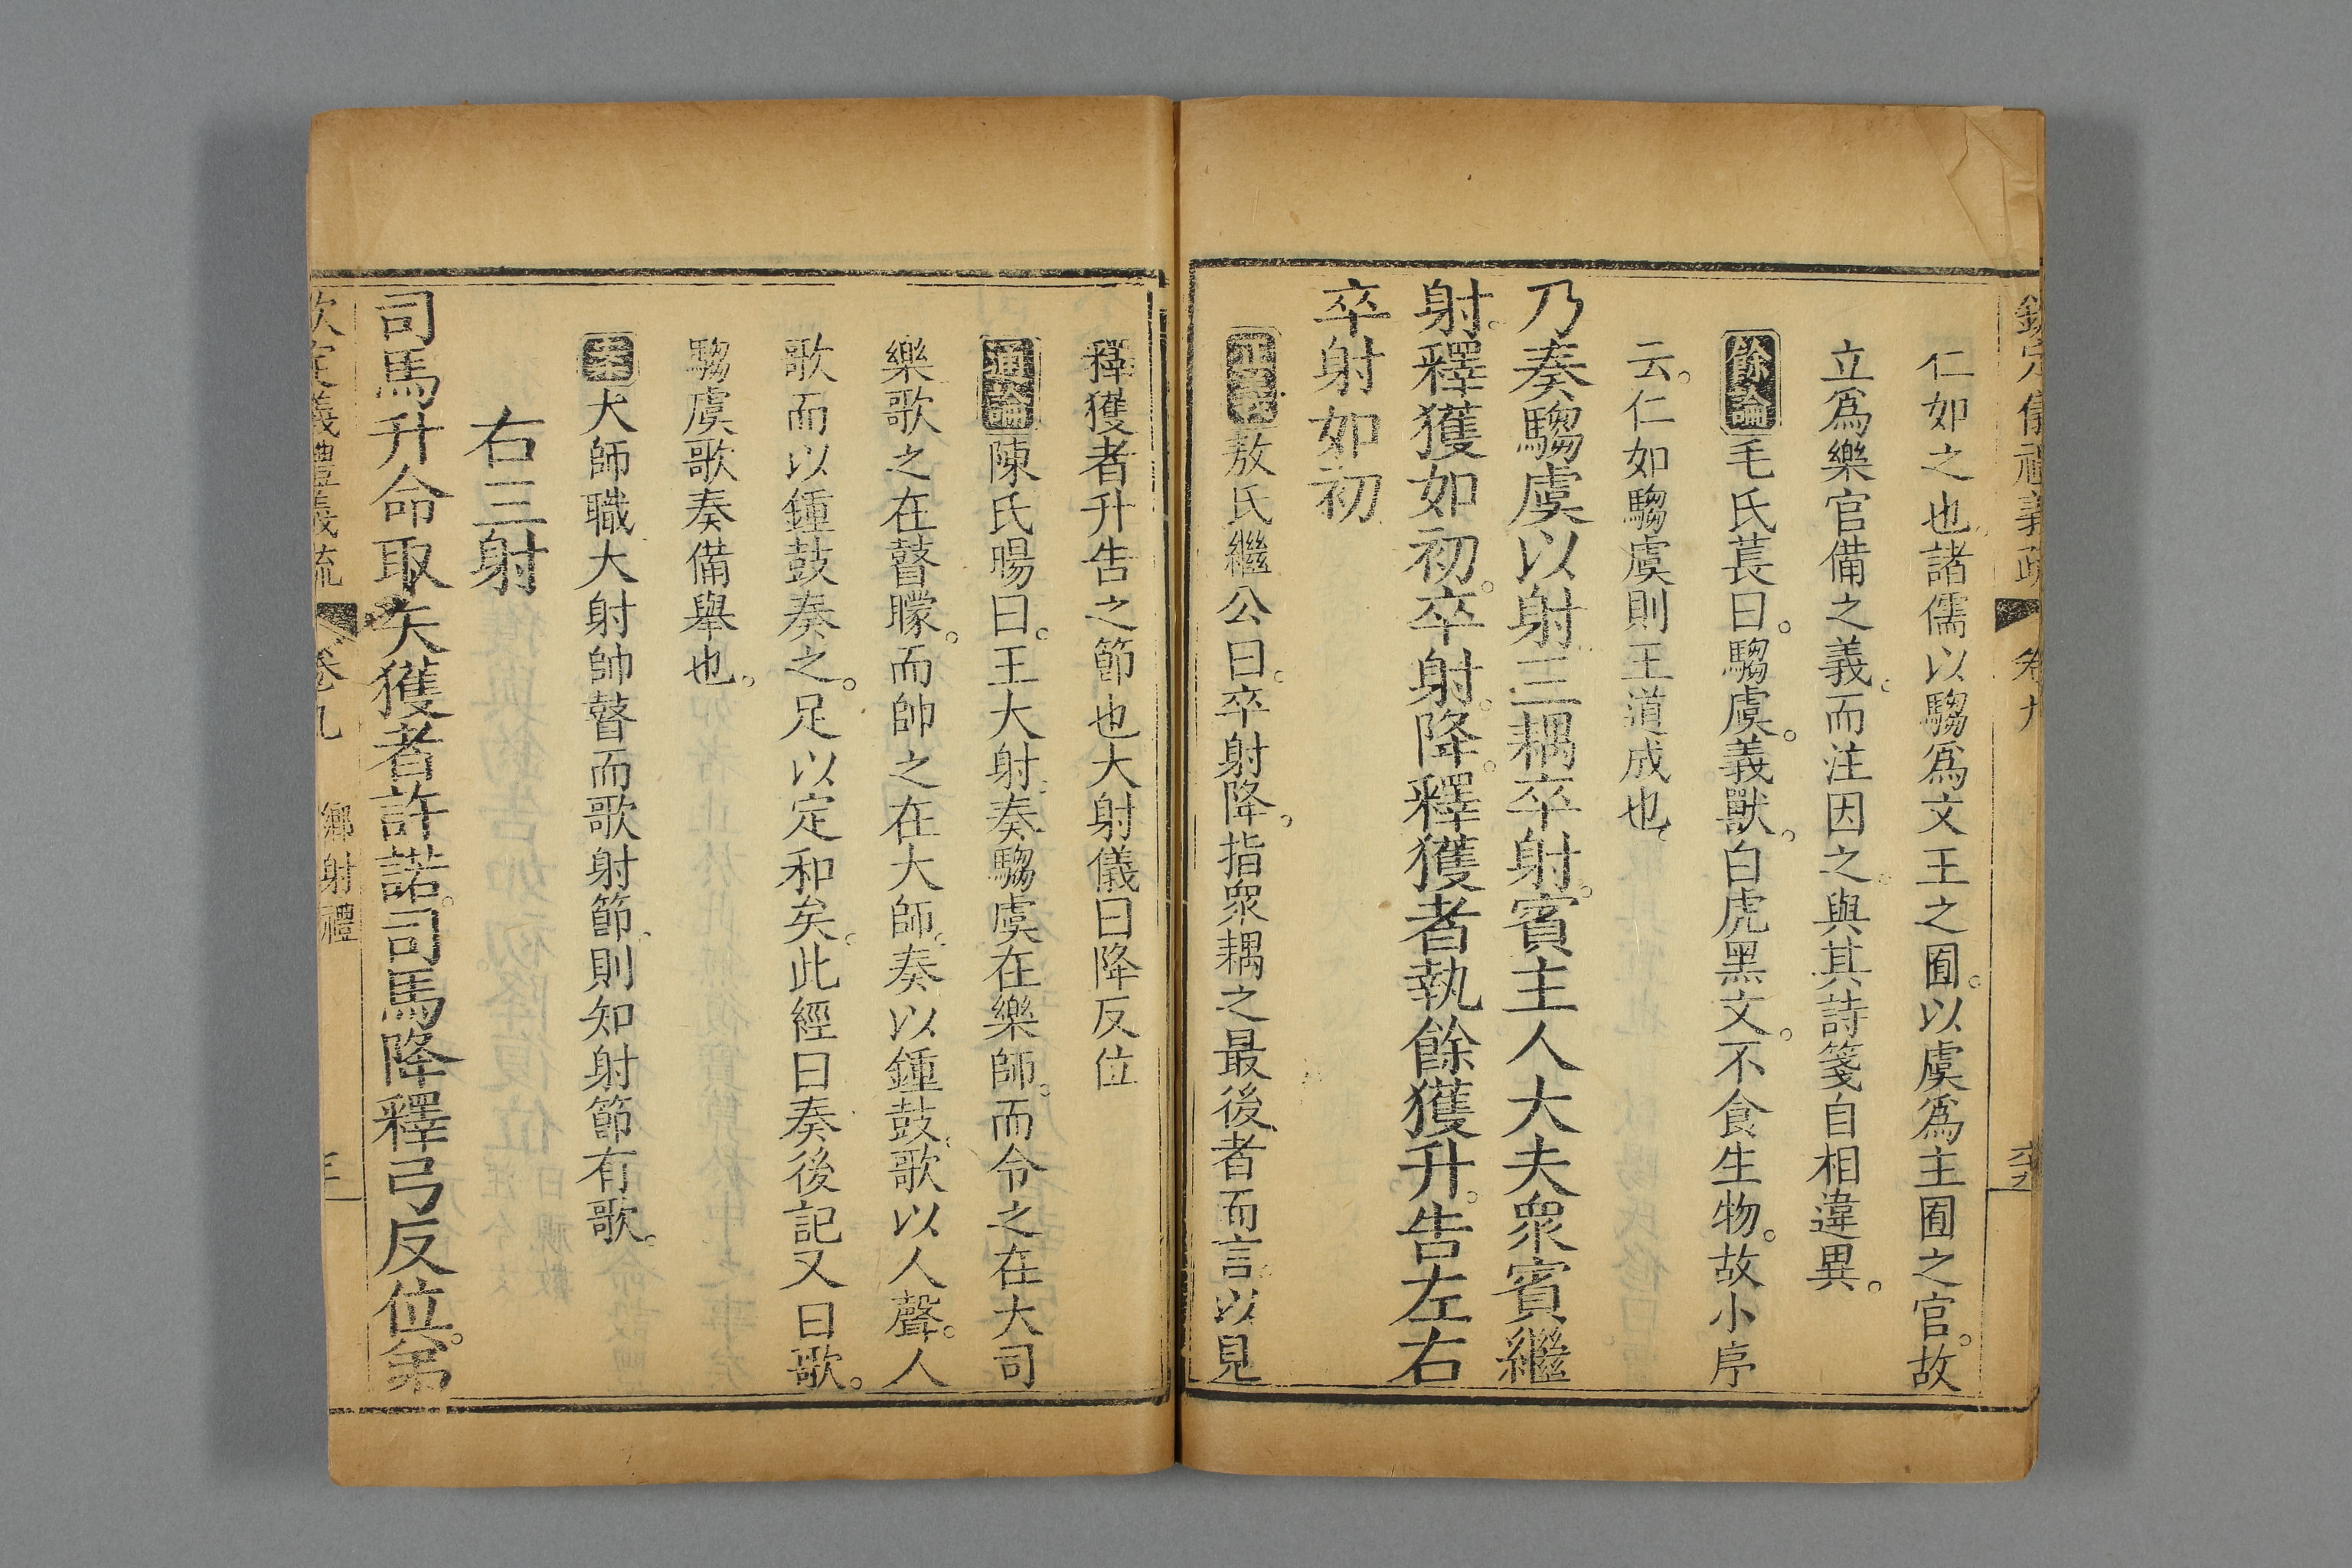 欽定儀禮義疏 卷九
仁如之也諸儒以騶爲文王之囿。以虞爲主囿之官。故
立爲樂官備之義。而注因之。與其詩箋自相違異。
餘論毛氏萇曰。騶虞。義獸。白虎黑文。不食生物。故小序
云。仁如騶虞則王道成也
乃奏騶虞以射三耦卒射。賓主人大夫衆賓繼
射。釋獲如初。卒射。降。釋獲者執餘獲升。告左右
卒射如初
正義敖氏繼公曰。卒射降。指衆耦之最後者而言。以見
釋獲者升告之節也大射儀曰降反位
通論陳氏暘曰。王大射。奏騶虞在樂師。而令之在大司
樂歌之在瞽矇。而帥之在大師。奏以鍾鼓。歌以人聲。人
歌而以鍾鼓奏之。足以定和矣。此經曰奏後記又曰歌。
騶虞歌奏備舉也。
案大師職大射帥瞽而歌射節。則知射節有歌。
右三射
司馬升命取矢獲者許諾。司馬降釋弓反位。弟
欽定儀禮義疏 卷九 鄉射禮